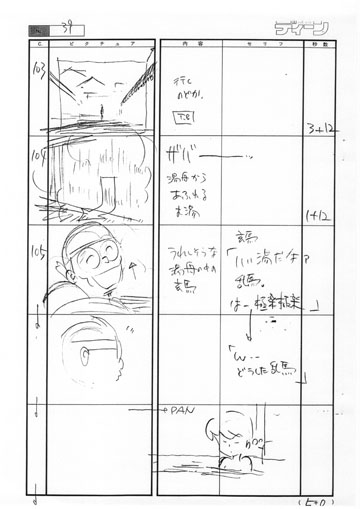 39
ディーン
C
ピクチュア
内容
セリフ
秒数
103
行く
のどか。
T.B
3+12
104
ザバー
湯舟から
あふれる
お湯
1+12
105
うれしそうな
湯舟の中の
玄馬
玄馬
「いい湯だなァ
乱馬。
はー極楽極楽」
「ん…
どうした乱馬」
PAN
(5+0)